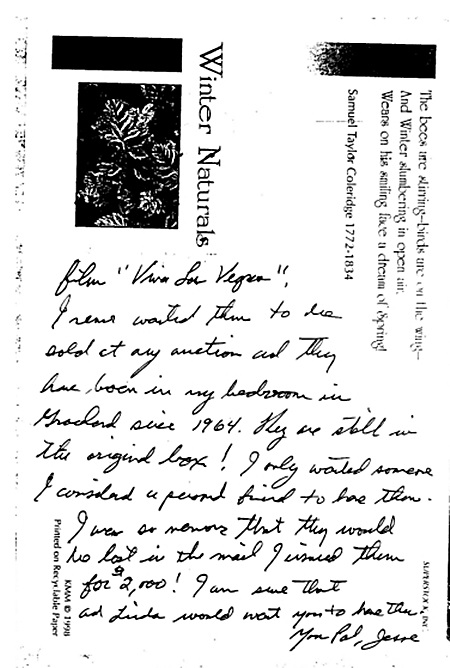 Winter Naturals
The bees are stirring—birds are on the wing—
And Winter slumbering in open air,
Wears on his smiling face a dream of Spring!
Samuel Taylor Coleridge 1772-1834
film "Viva Las Vegas",
I never wanted them to be
sold at any auction and they
have been in my bedroom in
Graceland since 1964. They are still in
the original box! I only wanted someone
I considered a personal friend to have them.
I was so nervous that they would
be lost in the mail I insured them
for $2,000! I am sure that
and Linda would want you to have them.
Your Pal, Jesse
KMM © 1998
Printed on Recyclable Paper
SUPERSTOCK, INC.